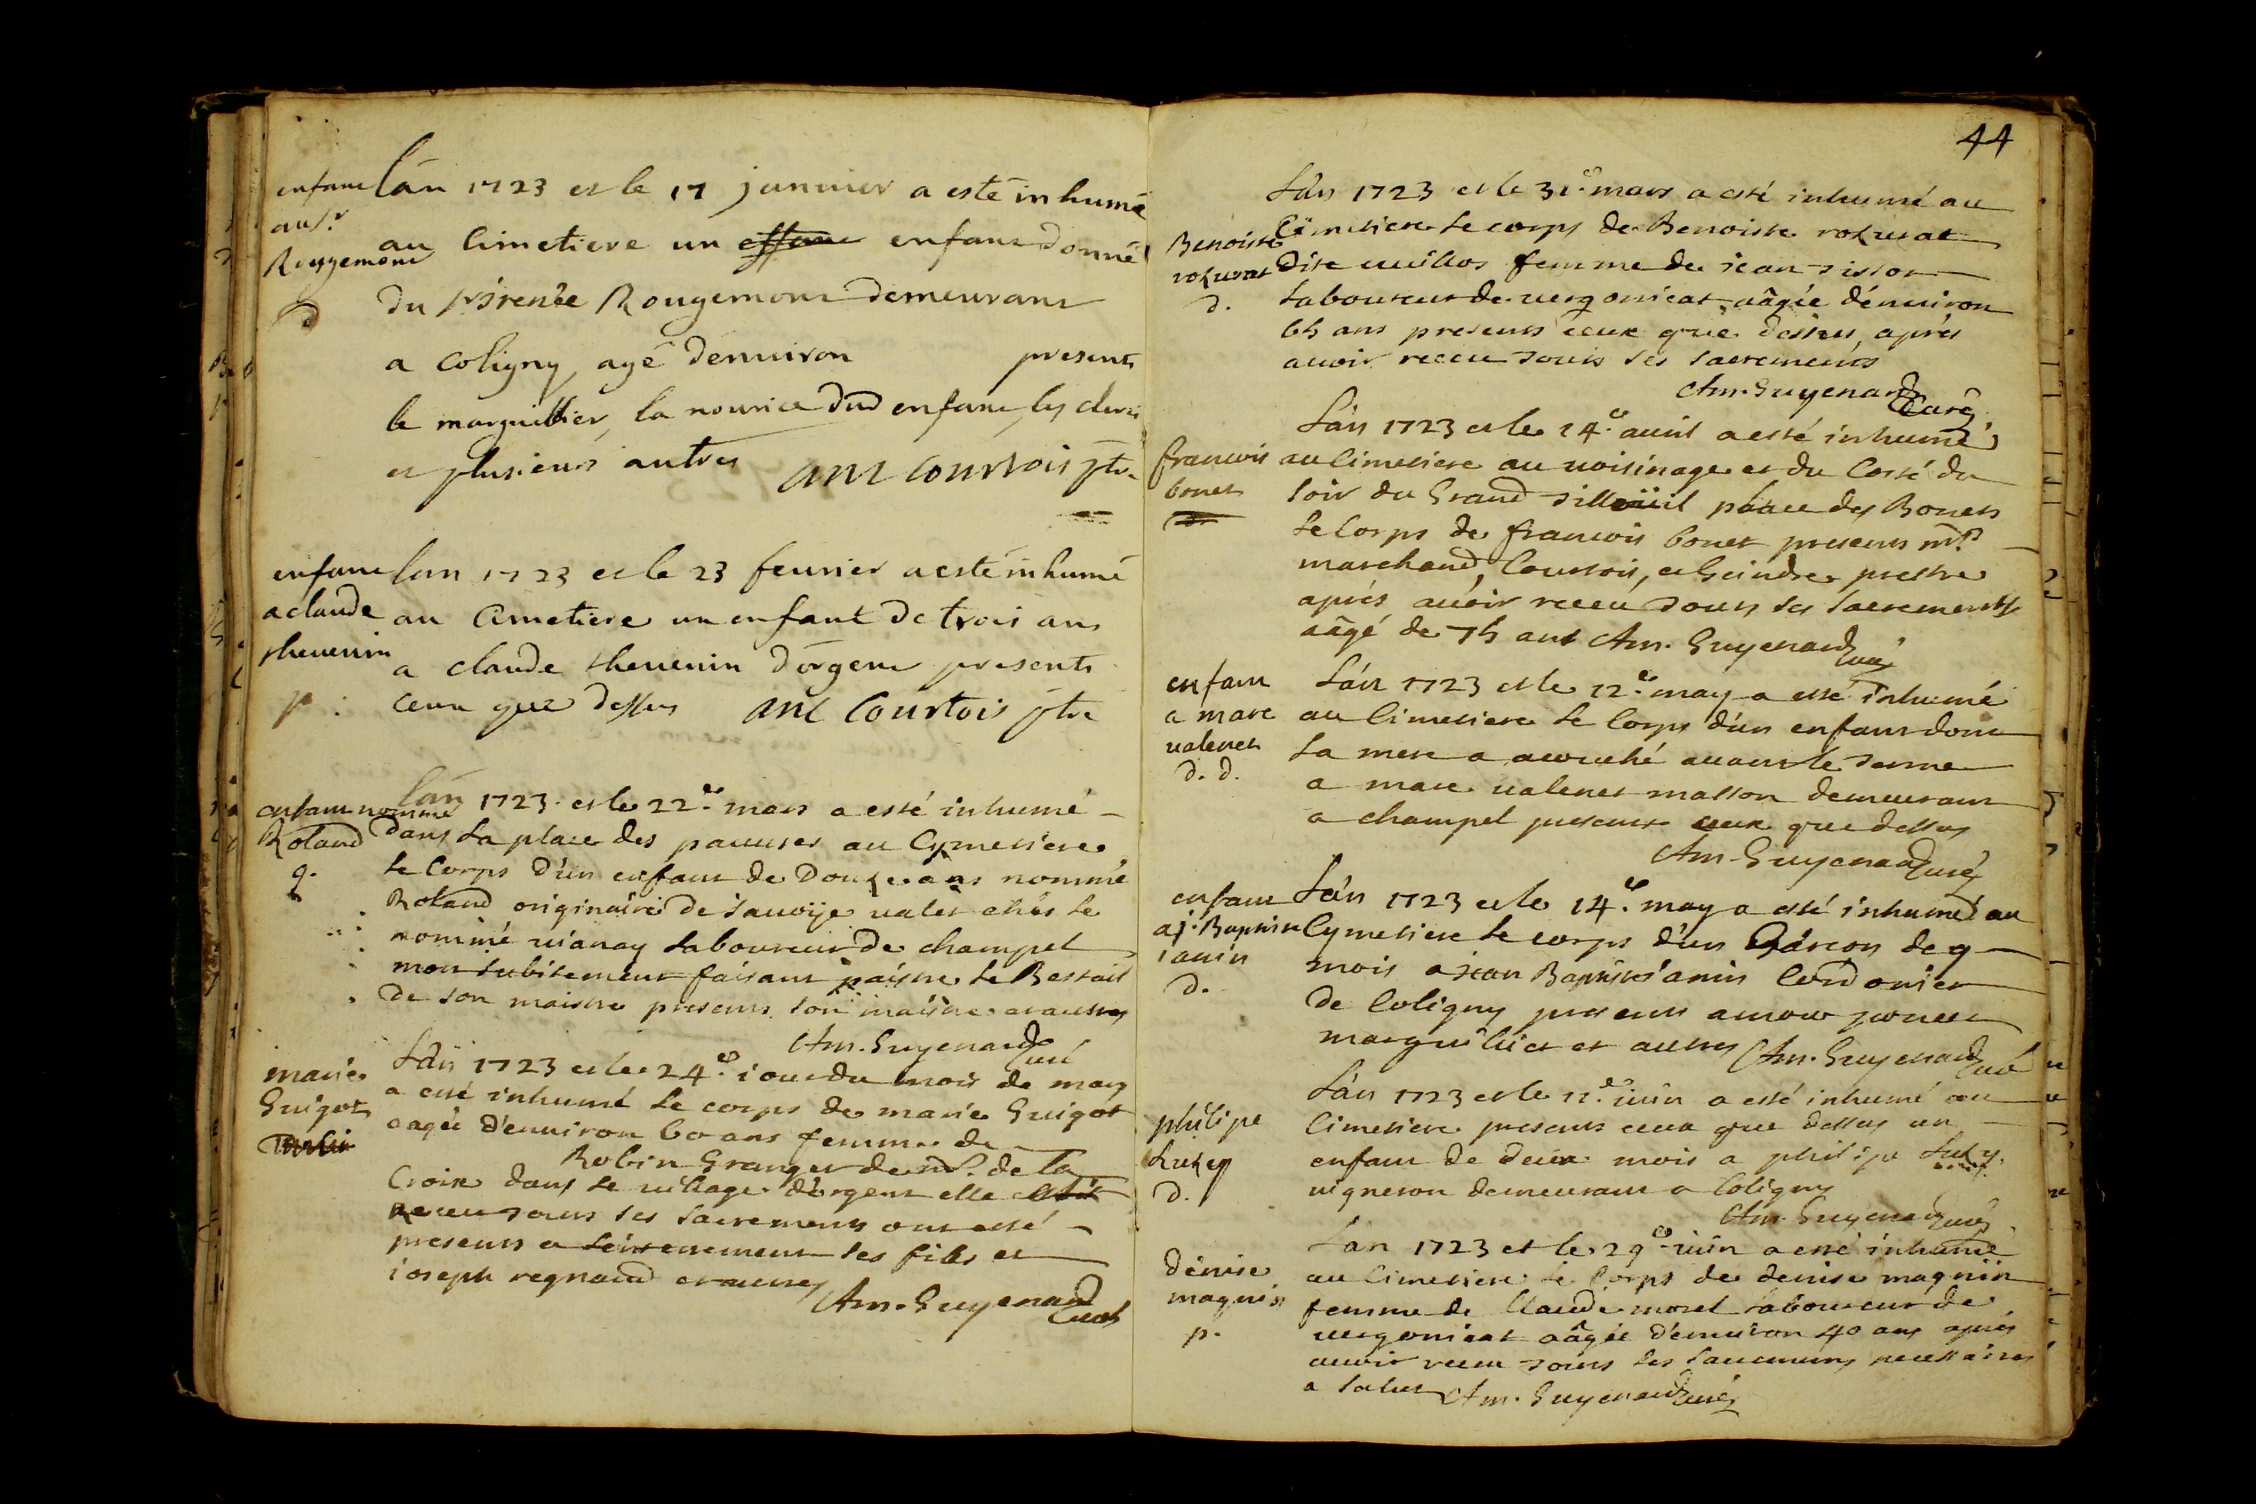 enfant
au sr
Rougemont
d
Lan 1723 et le 17 janvier a esté inhumé
au Cimetiere un enfant donné
du sr irenée Rougemont demeurant
a Coligny, agé denuiron presents
le marguillier, la nourice dud enfant, les clercs
et plusieurs autres ant Courtois ptre
enfant
a claude
theuenin
p.
Lan 1723 et le 23 feurier a esté inhumé
au Cimetiere un enfant de trois ans
a claude theuenin dorgent presents
ceux que dessus ant Courtois ptre
enfant nommé
Roland
g.
Lán 1723 et le 22e mars a esté inhumé
dans la place des pauures au Cymetiere
le Corps d'un enfant de Douze ans nommé
Roland originaire de sauoÿe ualet chés le
nommé uianay laboureur de champel
mort subitement faisant paistre le Bestail
de son maistre presents son maistre et autres
Am. Guyenard Curé
marie
Guigot
Lán 1723 et le 24e iour du mois de mars
a esté inhumé le corps de marie Guigot
aagée d'enuiron 60 ans femme de
Robin Granger de nd. de la
Croix dans le uillage d'orgent elle
receu tous les sacrements ont esté
presents a lenterrement ses fils et
ioseph regnaud et autres
Am. Guyenard Curé
44
Benoiste
rozurat
d.
Lán 1723 et le 31e mars a esté inhumé au
Cimetiere le corps de Benoiste rozurat
dite uuillos femme de iean tisson
laboureur de uergonieat aâgée d'enuiron
65 ans presents ceux que dessus, aprés
auoir receu touts les sacrements
Am. Guyenard Curé
francois
bonet
Lán 1723 et le 14e auril a esté inhumé
au Cimetiere au uoisinage et du Costé du
soir du Grand tilleüil place des Bonets
le Corps de francois bonet presents mrs
marchand, Courtois, et Geindre prestre
aprés auoir receu touts les sacrements
aâgé de 75 ans Am. Guyenard Curé
enfant
a marc
ualenet
d. d.
Lán 1723 et le 12e may a esté inhumé
au Cimetiere le Corps d'un enfant dont
la mere a acouché auant le terme
a marc ualenet masson demeurant
a champel presents ceux que dessus
Am. Guyenard Curé
enfant
a j. Baptiste
ianin
d.
Lán 1723 et le 14e may a esté inhumé au
Cymetiere le corps d'un Garcon de 9
mois a iean Baptiste ianin Cordonier
de Coligny presents
marguillier et autres Am. Guyenard Curé
philipe
Luzy
d.
Lán 1723 et le 12e iuin a esté inhumé au
Cimetiere presents ceux que dessus un
enfant de deux mois a philipe Luzy
uigneron demeurant a Coligny
Am. Guyenard Curé
denise
magnin
p.
Lan 1723 et le 29e iuin a esté inhumé
au Cimetiere le Corps de denise magnin
femme de Claude morel laboureur de
uergonieat aâgée d'enuiron 40 ans aprés
auoir receu touts les sacrements necessaires
a salut Am. Guyenard Curé